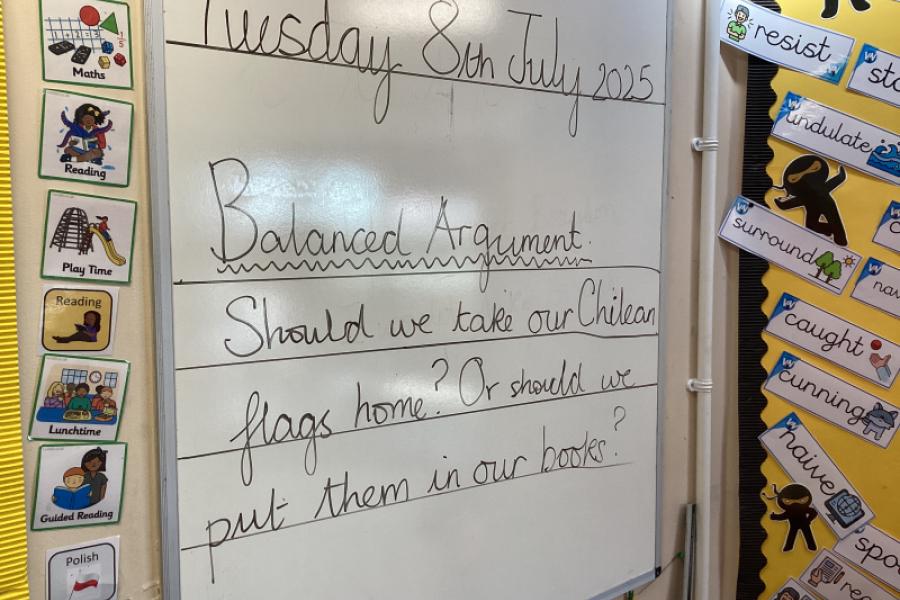 Maths
Reading
Play Time
Reading
Lunchtime
Guided Reading
Polish
Tuesday 8th July 2025
Balanced Argument.
Should we take our Chilean
flags home? Or should we
put them in our books?
resist
undulate
surround
caught
cunning
naive